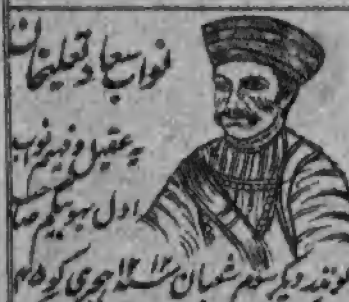 نواب سعادتعلیخان
یہ عقیل و فہیم نواب
اول بہو بیگم صا
شعبان ۱۲۱۲ ہجری کو